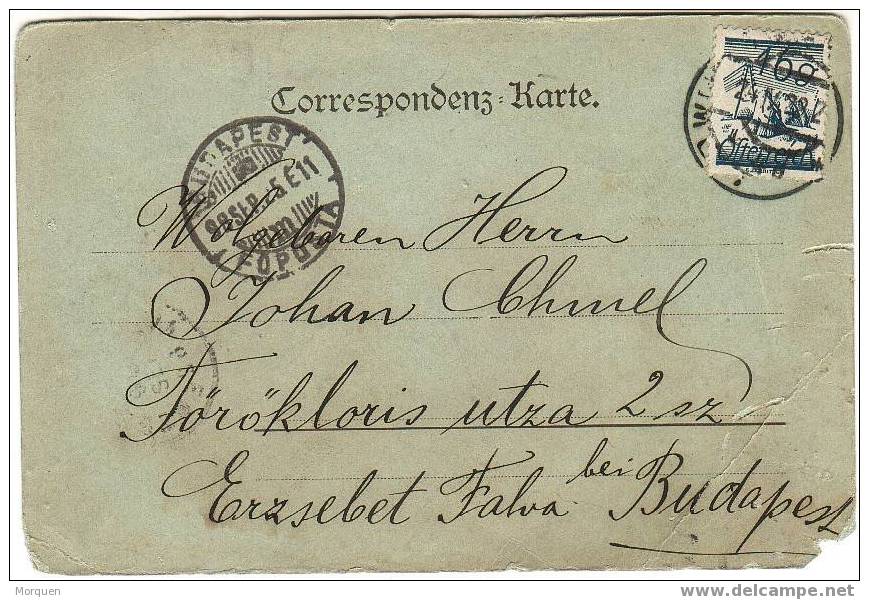 Correspondenz-Karte.
BUDAPEST
FŐPOSTA
168
Österreich
Wolgeboren Herrn
Johan Chmel
Törökloris utza 2 sz
Erzsebet Falva bei Budapest
Morquen
www.delcampe.net